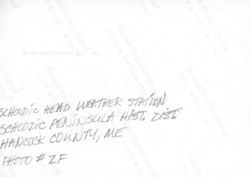 SCHOODIC HEAD WEATHER STATION
SCHOODIC PENINSULA HIST. DIST
HANCOCK COUNTY, ME
PHOTO # 2F